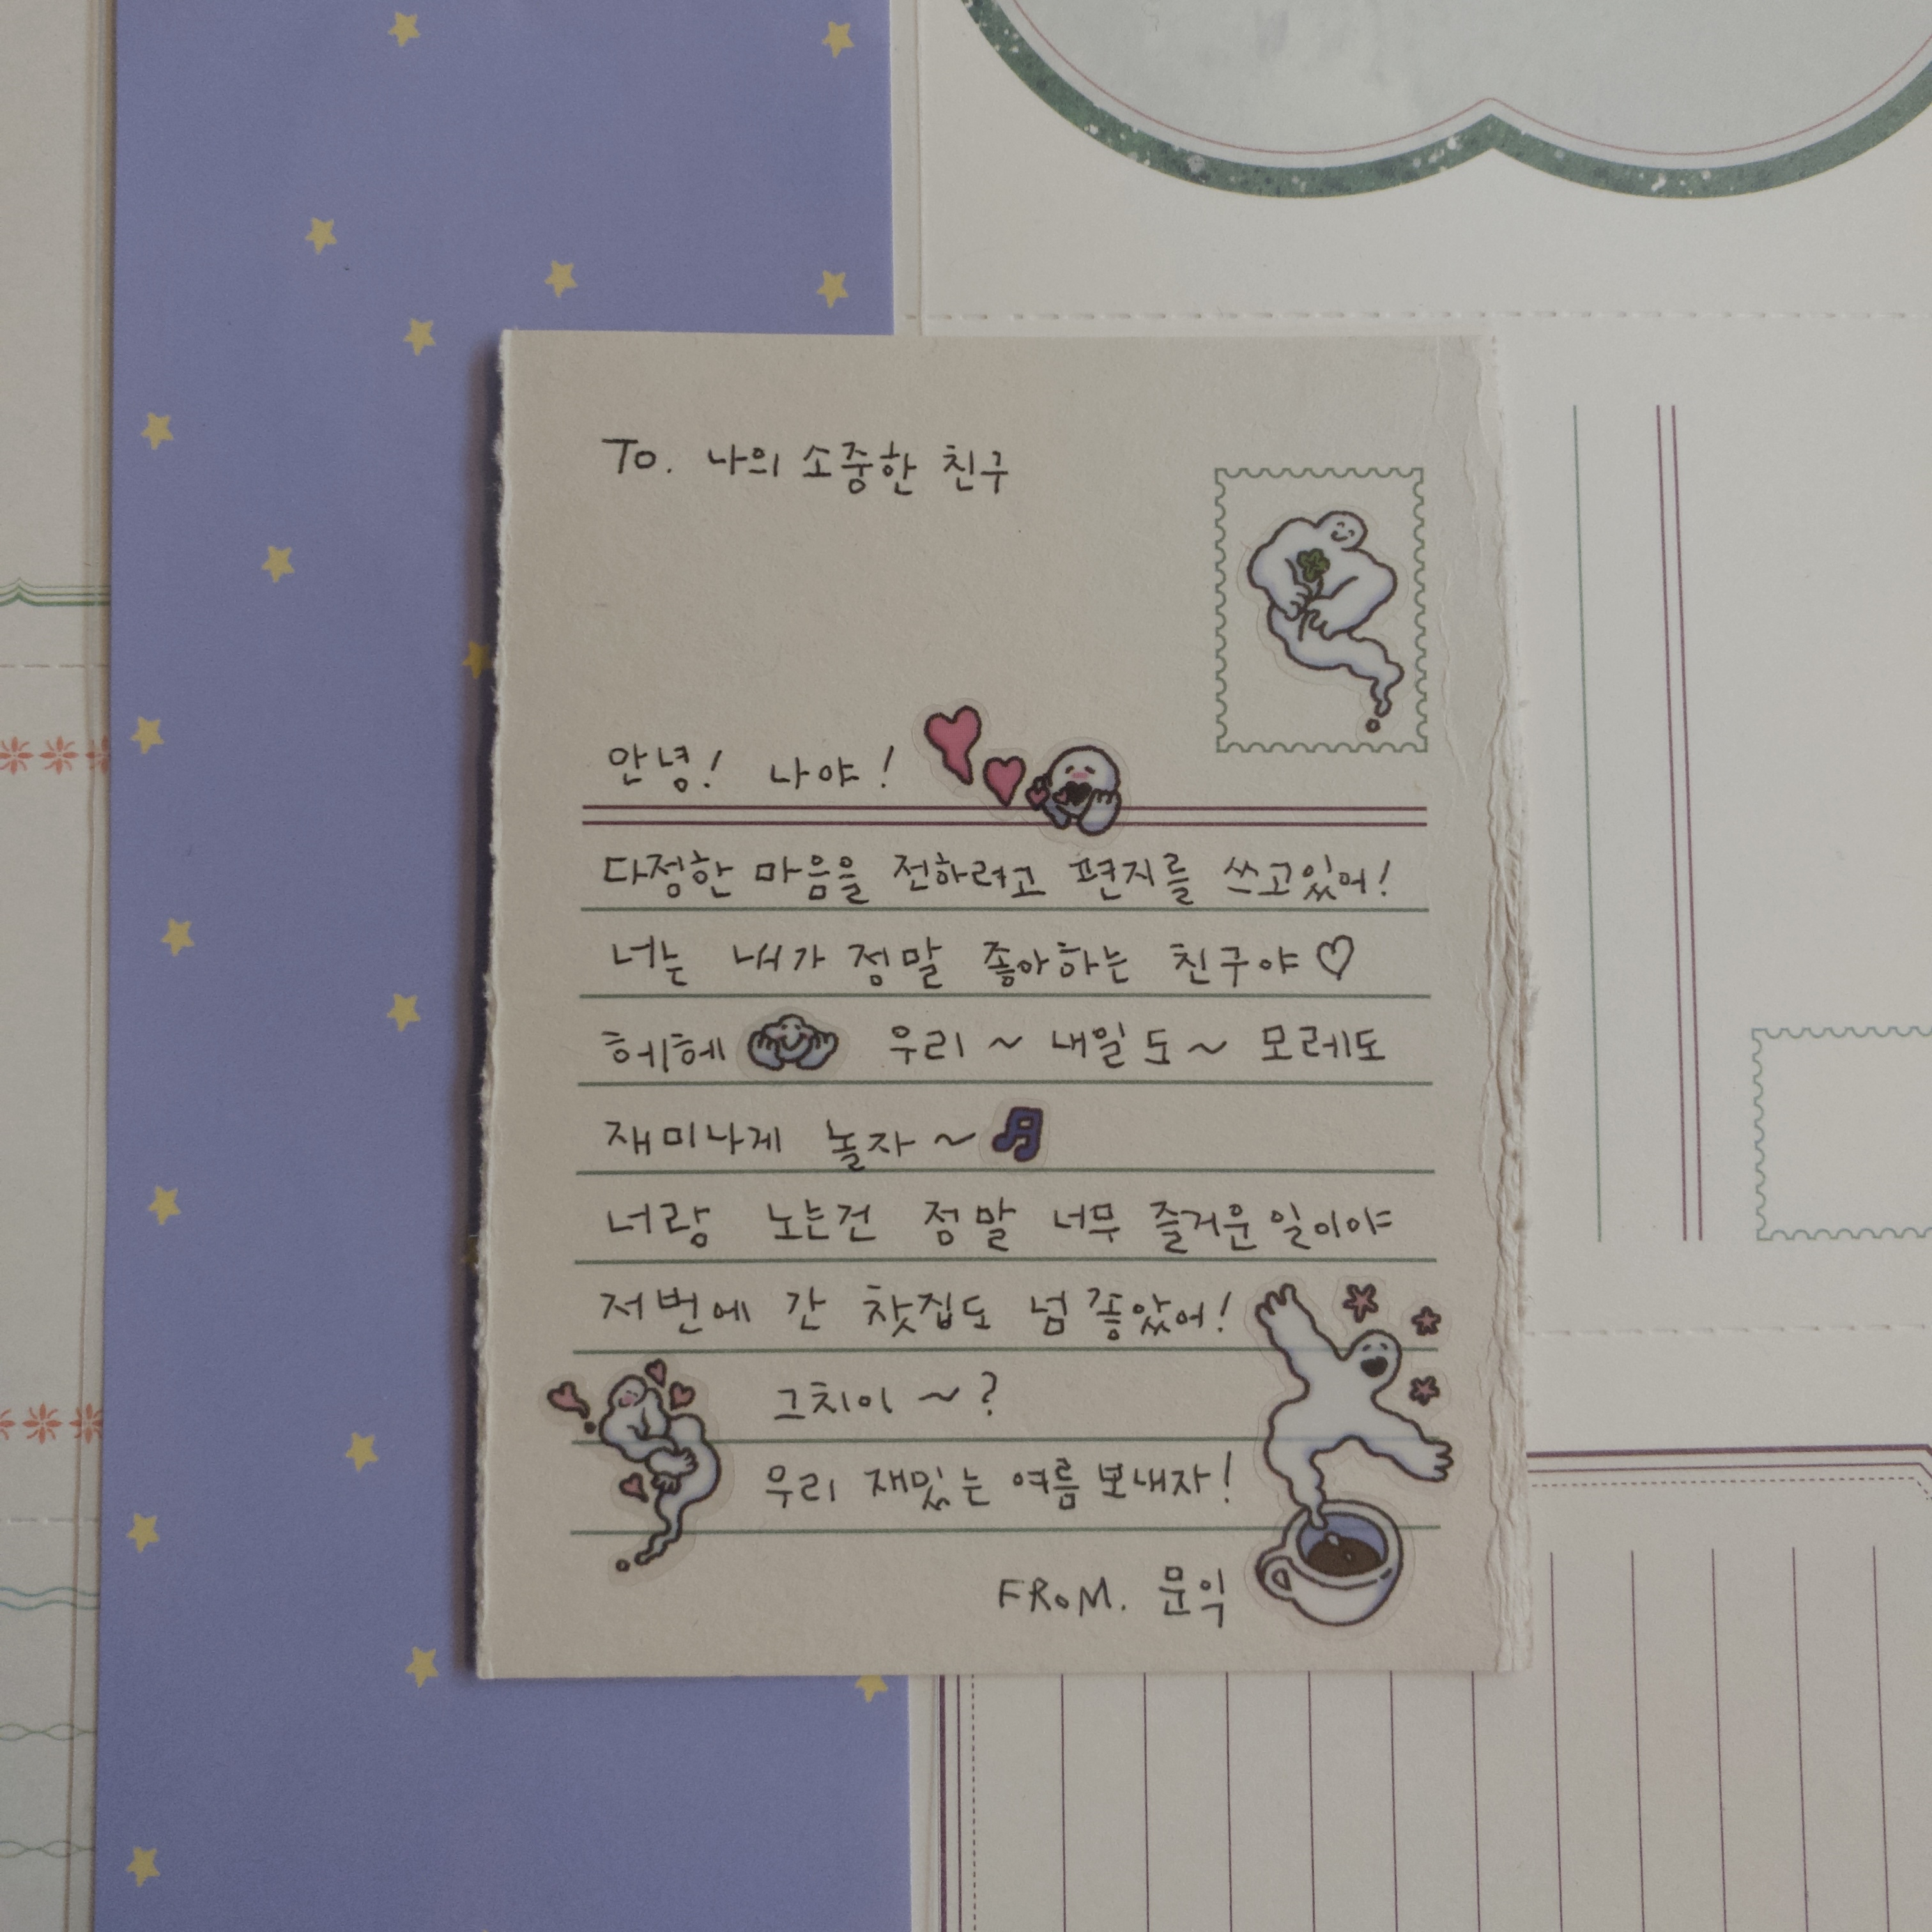 To. 나의 소중한 친구
안녕! 나야!
다정한 마음을 전하려고 편지를 쓰고있어!
너는 내가 정말 좋아하는 친구야♡
헤헤 우리~ 내일도~ 모레도
재미나게 놀자~
너랑 노는건 정말 너무 즐거운 일이야
저번에 간 찻집도 넘 좋았어!
그치이~?
우리 재밌는 여름 보내자!
FROM. 문익